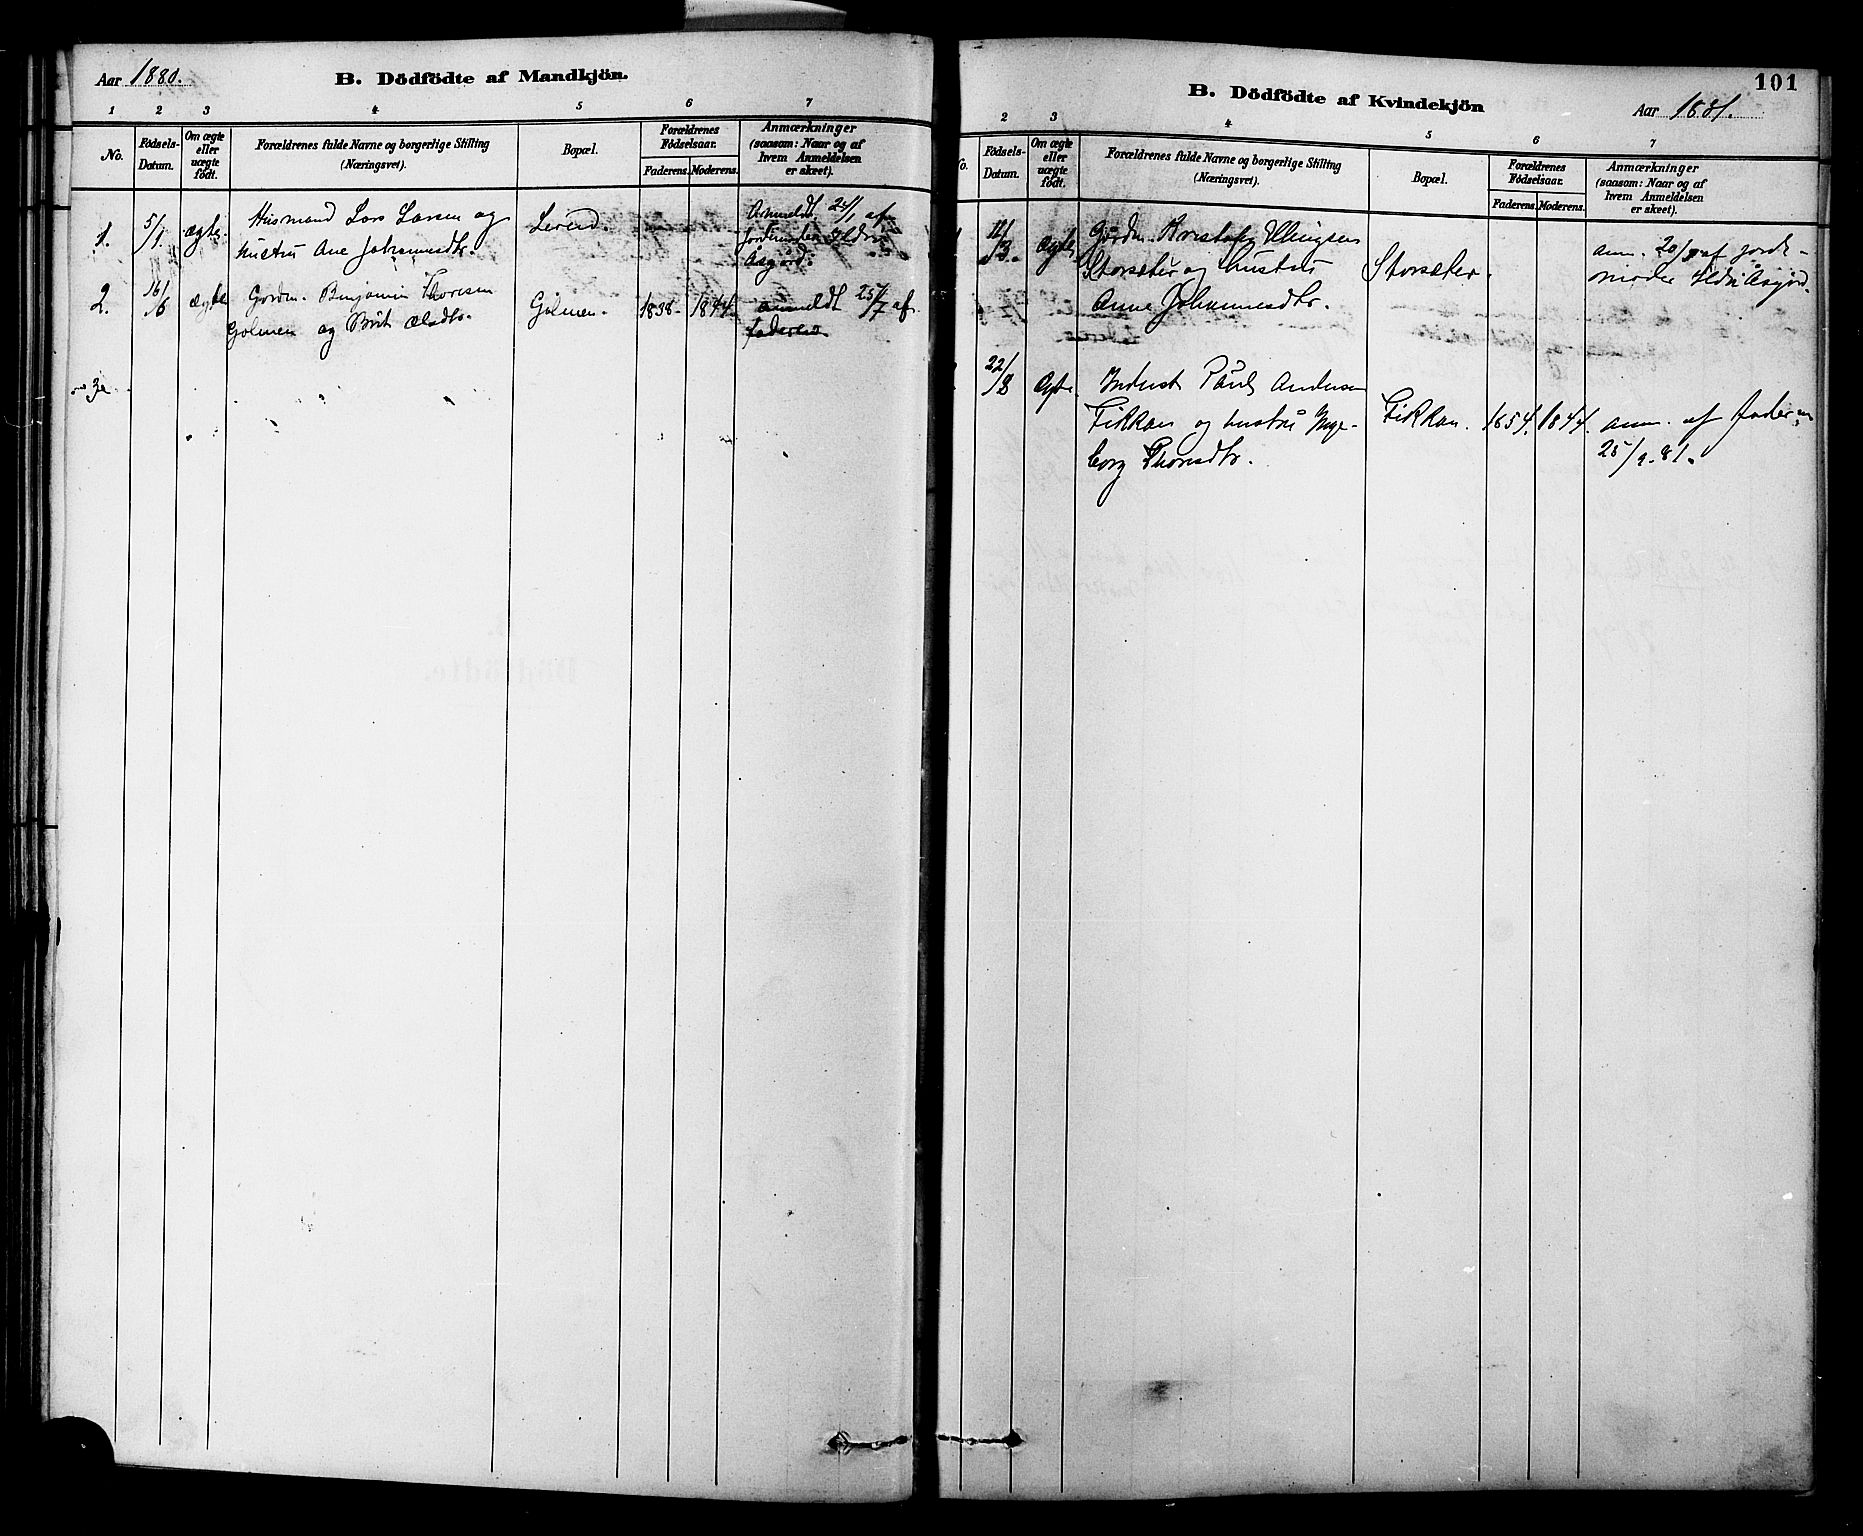 Aar 1880.
B. Dödfödte af Mandkjön.
1 2 3 4 5 6 7
No.
Födsels-
Datum.
Om ægte
eller
uægte
födt.
Forældrenes fulde Navne og borgerlige Stilling
(Næringsvei).
Bopæl.
Forældrenes
Födselsaar.
Faderens. Moderens.
Anmærkninger
(saasom: Naar og af
hvem Anmeldelsen
er skeet).
1. 5/1. ægte. Husmand Lars Larsen og
hustru Ane Johannesdtr.
Anmeldt 24/1 af
Jordmoder Ildri
Asgård.
2. 16/6 ægte Gårdm. Benjamin Thoresen
Golmen og Brit Olsdtr.
Golmen. 1838. 1844.
anmeldt 25/7 af
faderen
B. Dödfödte af Kvindekjön
Aar 1881.
101
2 3 4 5 6 7
No.
Födsels-
Datum.
Om ægte
eller
uægte
födt.
Forældrenes fulde Navne og borgerlige Stilling
(Næringsvei).
Bopæl.
Forældrenes
Födselsaar.
Faderens. Moderens.
Anmærkninger
(saasom: Naar og af
hvem Anmeldelsen
er skeet).
/3. ægte Gårdm. Kristofer Ellingsen
Storsæter og hustru
Anne Johannesdtr.
Storsæter.
anm. 20/ af jord-
moder Ildri Asgård.
22/8 ægte Inderst Paul Andersen
Fikkan og hustru Inge-
borg Thoresdtr.
Fikkan. 1854. 1844.
anm. af faderen
25/9. 81.